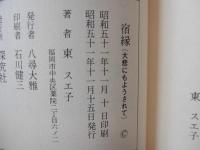 宿縁（大悲にもようされて）©
昭和五十一年十一月十日印刷
昭和五十一年十一月十五日発行
著者 東スエ子
福岡市中央区薬院二丁目六ノ二
発行者 八尋大雅
印刷者 石川健三
探究社